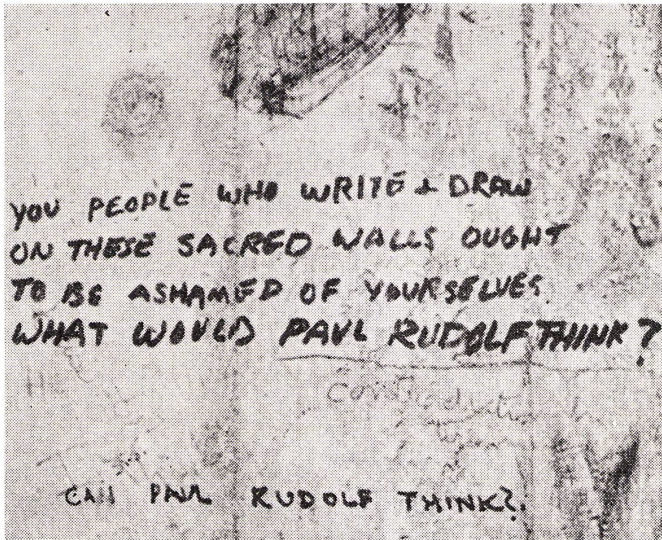 YOU PEOPLE WHO WRITE & DRAW
ON THESE SACRED WALLS OUGHT
TO BE ASHAMED OF YOURSELVES
WHAT WOULD PAUL RUDOLF THINK?
CAN PAUL RUDOLF THINK?